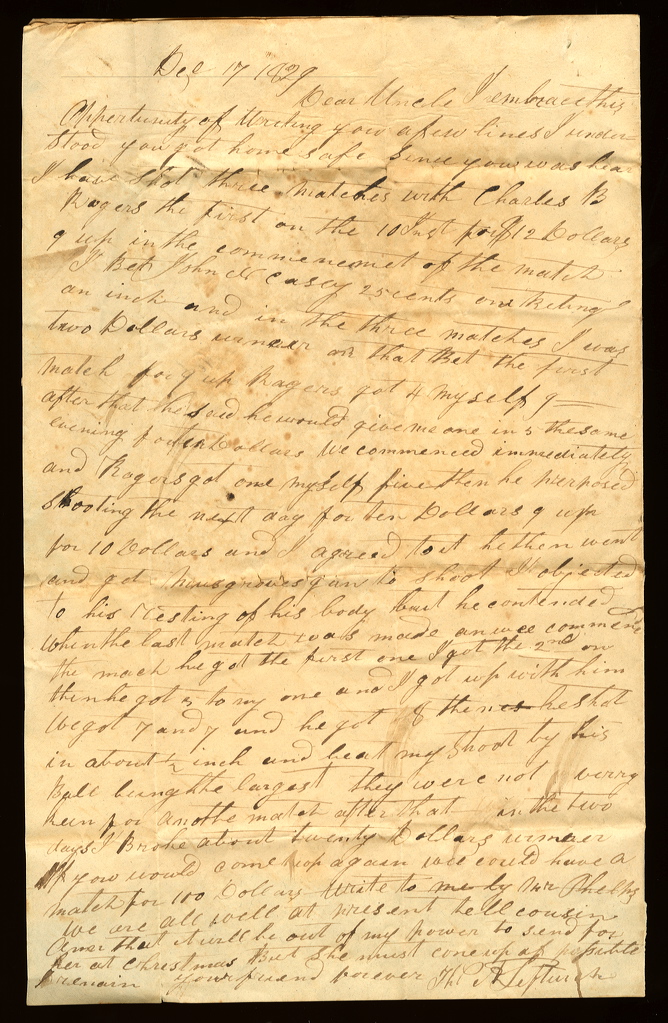 Dec 17 1829
Dear Uncle I embrace this
Oppertunity of Writing you a few lines I under
stood you got home safe Since you was hear
I have Shot three matches with Charles B
Rogers the first on the 10 Inst for $12 Dollars
9 up in the commencemet of the match
I Bet John casey 25 cents on
an inch and in the three matches I was
two Dollars winner on that Bet the first
match for 9 up Rogers got 4 myself 9
after that he said he would give me one in 5 the same
evening for ten Dollars We commenced immediately
and Rogers got one myself five then he perposed
shooting the next day for ten Dollars 9 up
for 10 Dollars and I agreed to it he then went
and got Musgroves gun to shoot I objected
to his Resting of his body but he contended
when the last match was made an we commenc
the mach he got the first one I got the 2nd on
then he got 5 to my one and I got up with him
We got 7 and 7 and he got 8 then he shot
in about ½ inch and beat my Shoot by his
Ball being the largest they were not verry
keen for anothe match after that in the two
days I Broke about twenty Dollars winner
If you would come up again we could have a
match for 100 Dollars Write to me by Mr Phelps
We are all well at present tell cousin
that it will be out of my power to send for
her at Christmas But She must come up if possible
I remain your friend forever Th A Leftwich